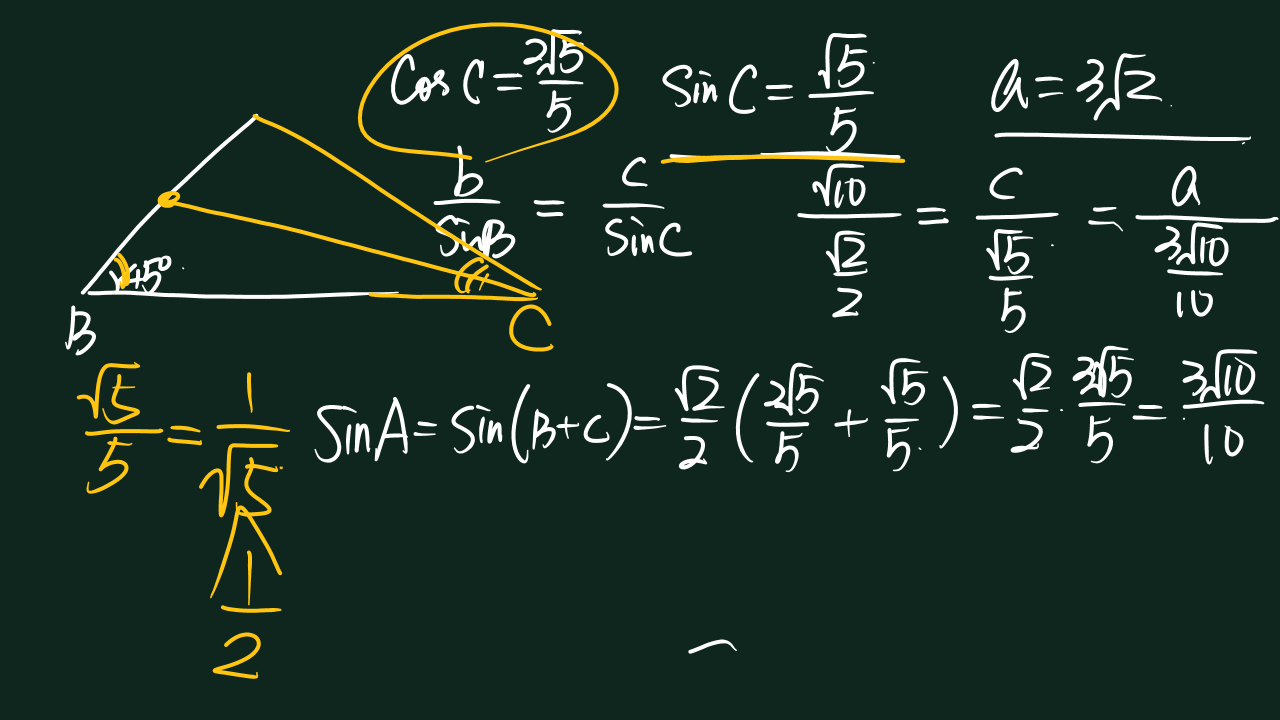 cos C = 2√5/5
sin C = √5/5
a = 3√2
b/sinB = c/sinC
√10/(√2/2) = c/(√5/5) = a/(3√10/10)
45°
B
C
√5/5 = 1/√5
sinA = sin(B+C) = √2/2 (2√5/5 + √5/5) = √2/2 · 3√5/5 = 3√10/10
1/2